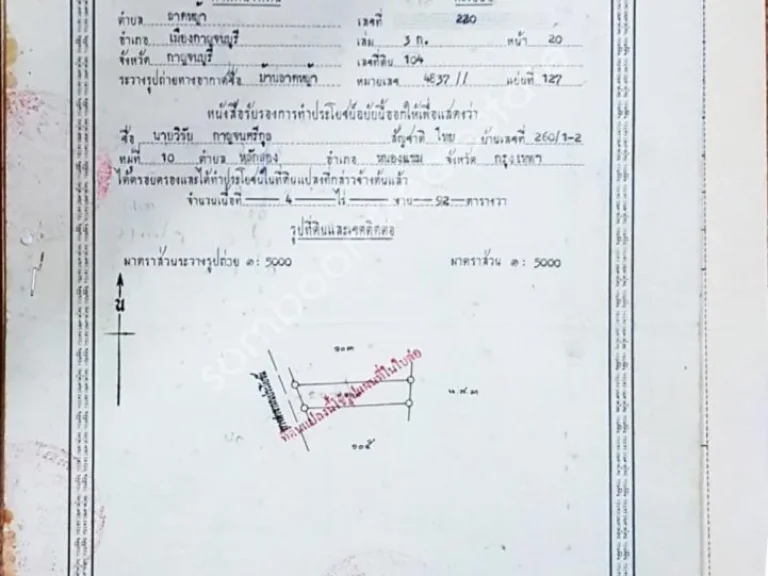 ตำบล ลาดหญ้า เลขที่ 220
อำเภอ เมืองกาญจนบุรี เล่ม 3 ก. หน้า 20
จังหวัด กาญจนบุรี เลขที่ดิน 104
ระวางรูปถ่ายทางอากาศชื่อ บ้านลาดหญ้า หมายเลข 4837 // แผ่นที่ 127
หนังสือรับรองการทำประโยชน์ฉบับนี้ออกให้เพื่อแสดงว่า
ชื่อ นายวิรัย กาญจนตรีกุล สัญชาติ ไทย บ้านเลขที่ 260/1-2
หมู่ที่ 10 ตำบล หลักสอง อำเภอ หนองแขม จังหวัด กรุงเทพฯ
ได้ครอบครองและได้ทำประโยชน์ในที่ดินแปลงที่กล่าวข้างต้นแล้ว
จำนวนเนื้อที่ 4 ไร่ งาน 92 ตารางวา
รูปที่ดินและเขตติดต่อ
มาตราส่วนระวางรูปถ่าย ๑ : 5000 มาตราส่วน ๑ : 5000
น
๑๐๓
ที่ดินแปลงนี้ใช้รูปแผนที่ในใบต่อ
น.ส.๓
๑๐๕